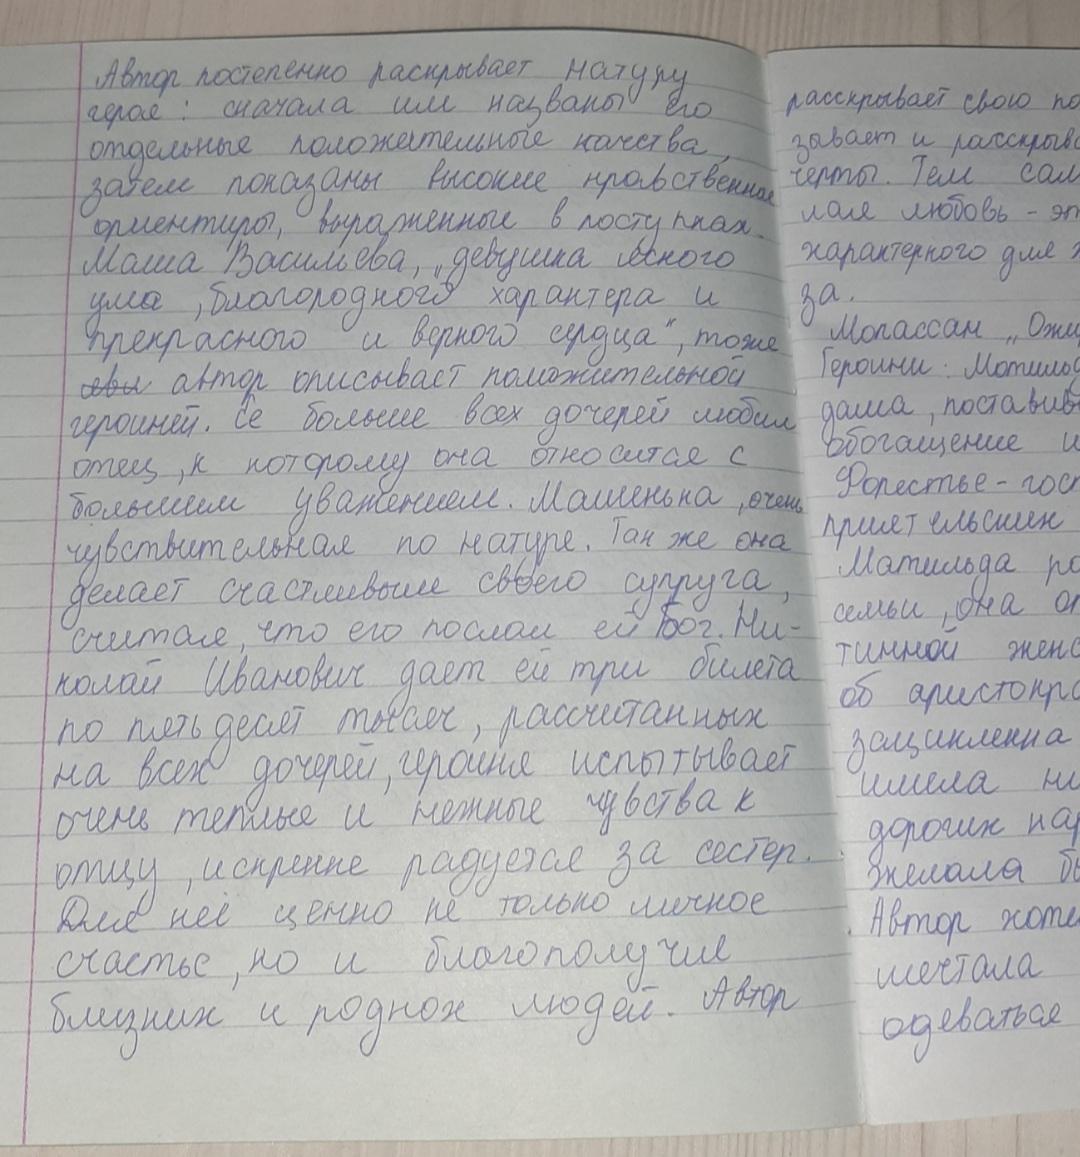 Автор постепенно раскрывает натуру
героя: сначала им названы его
отдельные положительные качества,
затем показаны высокие нравственные
ориентиры, выраженные в поступках.
Маша Васильева, „девушка ясного
ума, благородного характера и
прекрасного и верного сердца", тоже
автор описывает положительной
героиней. Её больше всех дочерей любил
отец, к которому она относится с
большим уважением. Машенька, очень
чувствительная по натуре. Так же она
делает счастливым своего супруга,
считая, что его послал ей Бог. Ни-
колай Иванович дает ей три билета
по пять десят тысяч, рассчитанных
на всех дочерей, героиня испытывает
очень теплые и нежные чувства к
отцу, искренне радуется за сестер.
Для неё ценно не только личное
счастье, но и благополучие
близких и родных людей. Автор
расскрывает свою по
зывает и расскрыв
черты. Тем сам
лая любовь - эт
характерного для
за.
Мопассан „Ожи
Героини: Матильд
дама, поставив
обогащение и
Форестье - гос
приятельских
Матильда ро
семьи, она от
тинной женс
об аристокра
зациклена
имела ни
дорогих нар
Желала бы
Автор хоте
мечтала
одеваться